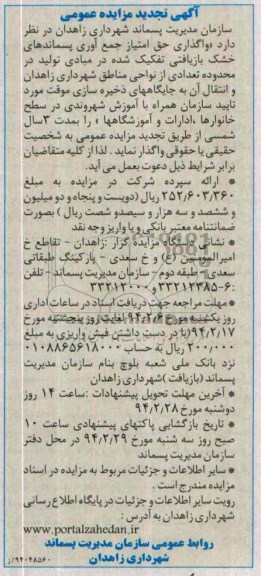 آگهی تجدید مزایده عمومی
سازمان مدیریت پسماند شهرداری زاهدان در نظر
دارد «واگذاری حق امتیاز جمع آوری پسماندهای
خشک بازیافتی تفکیک شده در مبادی تولید در
محدوده تعدادی از نواحی مناطق شهرداری زاهدان
و انتقال آن به جایگاههای ذخیره سازی موقت مورد
تایید سازمان همراه با آموزش شهروندی در سطح
خانوارها ،ادارات و آموزشگاهها » را بمدت ۳سال
شمسی از طریق تجدید مزایده عمومی به شخصیت
حقیقی یا حقوقی واگذار نماید . لذا از کلیه متقاضیان
برابر شرایط ذیل دعوت بعمل می آید.
* ارائه سپرده شرکت در مزایده به مبلغ
۲۵۲/۶۰۳/۳۶۰ ریال (دویست و پنجاه و دو میلیون
و ششصد و سه هزار و سیصدو شصت ریال ) بصورت
ضمانتنامه معتبر بانکی و یا واریز وجه نقد
* نشانی دستگاه مزایده گزار :زاهدان - تقاطع خ
امیرالمومنین (ع) و خ سعدی - پارکینگ طبقاتی
سعدی - طبقه دوم - سازمان مدیریت پسماند - تلفن
:۶-۳۳۲۱۲۳۸۵ و ۳۳۲۱۲۰۰۰
* مهلت مراجعه جهت دریافت اسناد در ساعات اداری
روز یکشنبه مورخ ۹۴/۲/۶ لغایت روز پنجشنبه مورخ
۹۴/۲/۱۷(با در دست داشتن فیش واریزی به مبلغ
۲۰۰/۰۰۰ ریال به حساب ۰۱۰۸۸۶۵۶۱۸۰۰۰
نزد بانک ملی شعبه بلوچ بنام سازمان مدیریت
پسماند (بازیافت )شهرداری زاهدان
* آخرین مهلت تحویل پیشنهادات :ساعت ۱۴ روز
دوشنبه مورخ ۹۴/۲/۲۸
* تاریخ بازگشایی پاکتهای پیشنهادی ساعت ۱۰
صبح روز سه شنبه مورخ ۹۴/۲/۲۹ در محل دفتر
سازمان مدیریت پسماند
* سایر اطلاعات و جزئیات مربوط به مزایده در اسناد
مزایده مندرج است .
رویت سایر اطلاعات و جزئیات در پایگاه اطلاع رسانی
شهرداری زاهدان به آدرس :
www.portalzahedan.ir
روابط عمومی سازمان مدیریت پسماند
شهرداری زاهدان
۹۴۰۴۸۵۶۰/ز